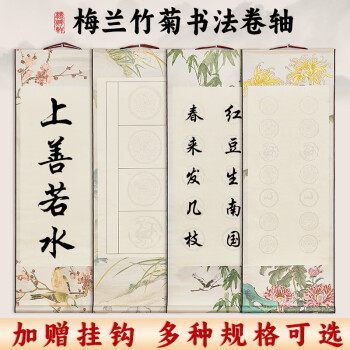 梅兰竹菊书法卷轴
上善若水
红豆生南国
春来发几枝
加赠挂钩 多种规格可选